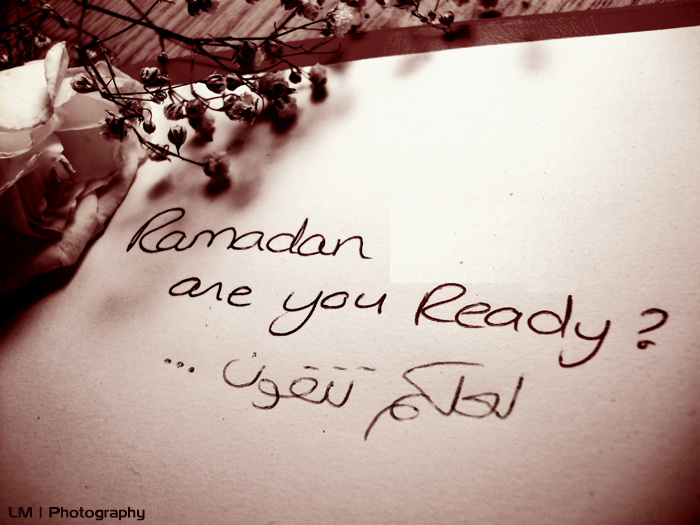 Ramadan
are you Ready ?
لعلكم تتقون ...
LM | Photography